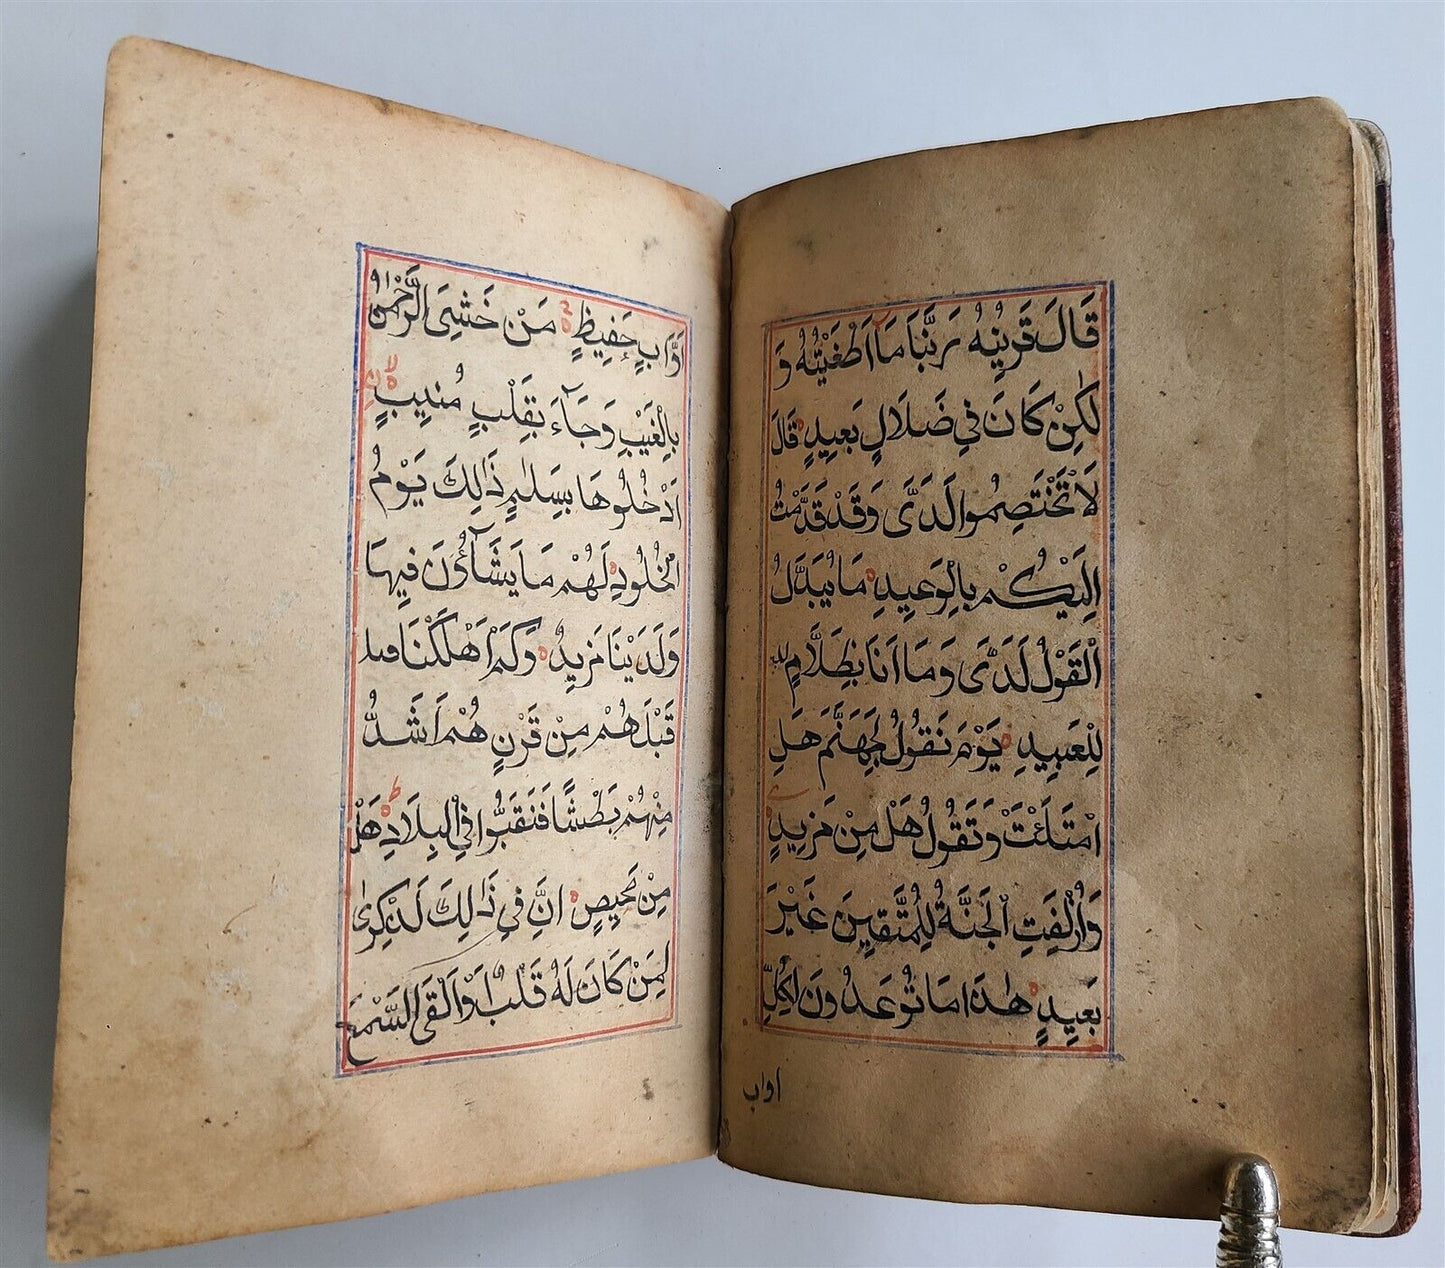 قَالَ قَرِينُهُ رَبَّنَا مَآ اَطْغَيْتُهُ وَ
لٰكِنْ كَانَ فِي ضَلَالٍ بَعِيدٍ قَالَ
لَا تَخْتَصِمُوا لَدَىَّ وَقَدْ قَدَّمْتُ
اِلَيْكُمْ بِالْوَعِيدِ مَا يُبَدَّلُ
الْقَوْلُ لَدَىَّ وَمَا اَنَا بِظَلَّامٍ
لِلْعَبِيدِ يَوْمَ نَقُولُ لِجَهَنَّمَ هَلِ
امْتَلَئْتِ وَتَقُولُ هَلْ مِنْ مَزِيدٍ
وَاُزْلِفَتِ الْجَنَّةُ لِلْمُتَّقِينَ غَيْرَ
بَعِيدٍ هٰذَا مَا تُوعَدُونَ لِكُلِّ
اواب
اَوَّابٍ حَفِيظٍ مَنْ خَشِىَ الرَّحْمٰنَ
بِالْغَيْبِ وَجَآءَ بِقَلْبٍ مُنِيبٍ
ادْخُلُوهَا بِسَلٰمٍ ذٰلِكَ يَوْمُ
الْخُلُودِ لَهُمْ مَا يَشَآؤُنَ فِيهَا
وَلَدَيْنَا مَزِيدٌ وَكَمْ اَهْلَكْنَا
قَبْلَهُمْ مِنْ قَرْنٍ هُمْ اَشَدُّ
مِنْهُمْ بَطْشًا فَنَقَّبُوا فِي الْبِلَادِ هَلْ
مِنْ مَحِيصٍ اِنَّ فِي ذٰلِكَ لَذِكْرٰى
لِمَنْ كَانَ لَهُ قَلْبٌ اَوْ اَلْقَى السَّمْعَ